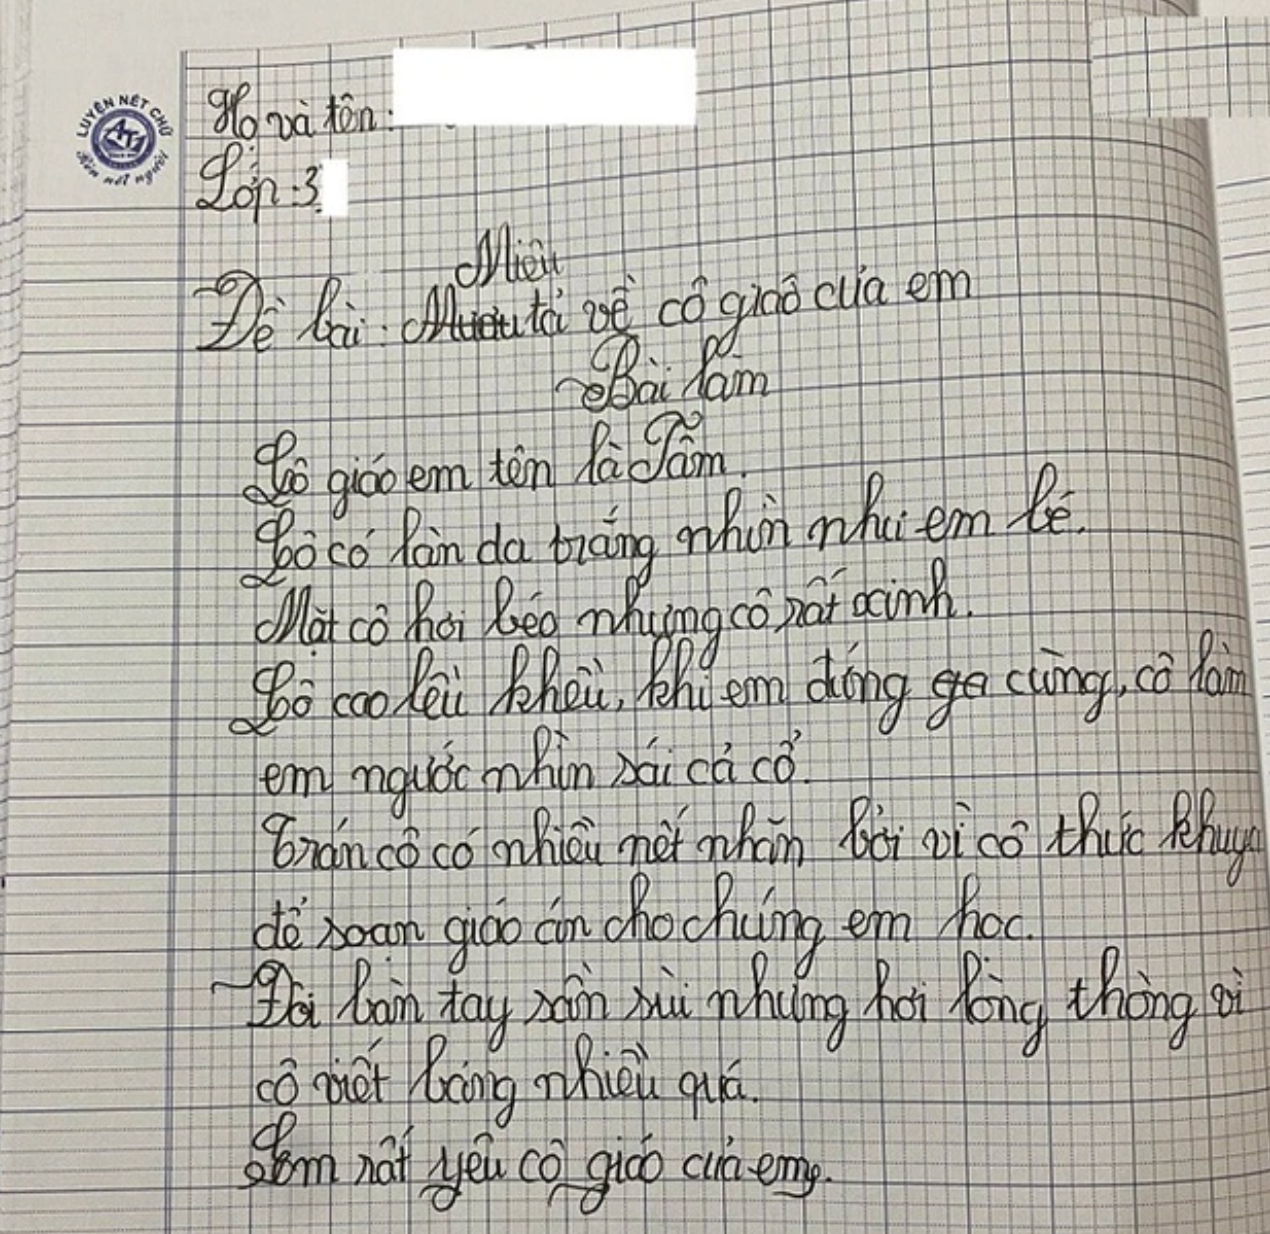 LUYỆN NÉT CHỮ
Rèn nết người
Họ và tên:
Lớp: 3
Miêu
Đề bài: tả về cô giáo của em
Bài làm
Cô giáo em tên là Tâm.
Cô có làn da trắng nhìn như em bé.
Mặt cô hơi béo nhưng cô rất xinh.
Cô cao lêu khêu, khi em đứng gần cùng, cô làm
em ngước nhìn sái cả cổ.
Trán cô có nhiều nết nhăn bởi vì cô thức khuya
để soạn giáo án cho chúng em học.
Đôi bàn tay sần sùi nhưng hơi lòng thòng vì
cô viết bảng nhiều quá.
Em rất yêu cô giáo của em.